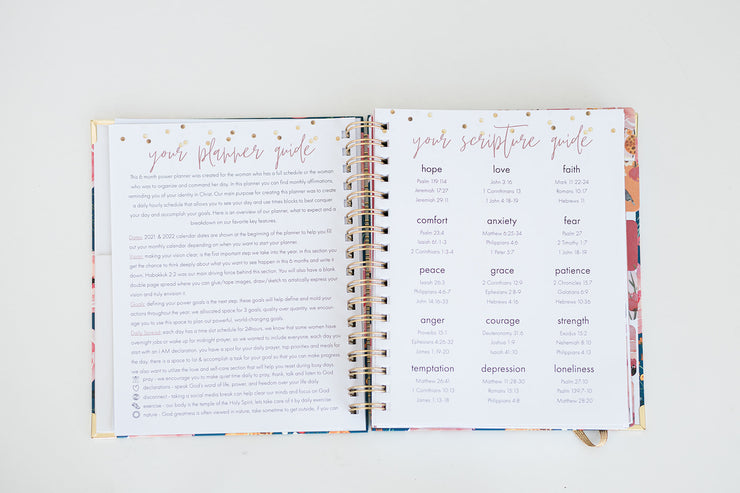 your planner guide
This 6 month power planner was created for the woman who has a full schedule or the woman
who was to organize and command her day. In this planner you can find monthly affirmations,
reminding you of your identity in Christ. Our main purpose for creating this planner was to create
a daily hourly schedule that allows you to see your day and use time blocks to best conquer
your day and accomplish your goals. Here is an overview of our planner, what to expect and a
breakdown on our favorite key features.
Dates: 2021 & 2022 calendar dates are shown at the beginning of the planner to help you fill
out your monthly calendar depending on when you want to start your planner.
Vision: making your vision clear, is the first important step we take into the year, in this section you
get the chance to think deeply about what you want to see happen in this 6 months and write it
down. Habakkuk 2:2 was our main driving force behind this section. You will also have a blank
double page spread where you can glue/tape images, draw/sketch to artistically express your
vision and truly envision it.
Goals: defining your power goals is the next step, these goals will help define and mold your
actions throughout the year, we allocated space for 3 goals; quality over quantity, we encour-
age you to use this space to plan out powerful, world-changing goals.
Daily Spread: each day has a time slot schedule for 24hours, we know that some women have
overnight jobs or wake up for midnight prayer, so we wanted to include everyone. each day you
start with an I AM declaration, you have a spot for your daily prayer, top priorities and meals for
the day, there is a space to list & accomplish a task for your goal so that you can make progress.
we also want to utilize the love and self-care section that will help you reset during busy days.
pray - we encourage you to make quiet time daily to pray, thank, talk and listen to God
declarations - speak God's word of life, power, and freedom over your life daily
disconnect - taking a social media break can help clear our minds and focus on God
exercise - our body is the temple of the Holy Spirit, lets take care of it by daily exercise
nature - God greatness is often viewed in nature, take sometime to get outside, if you can
your scripture guide
hope love faith
Psalm 119:114 John 3:16 Mark 11:22-24
Jeremiah 17:7 1 Corinthians 13 Romans 10:17
Jeremiah 29:11 1 John 4:18-19 Hebrews 11
comfort anxiety fear
Psalm 23:4 Matthew 6:25-34 Psalm 27
Isaiah 61:1-3 Philippians 4:6 2 Timothy 1:7
2 Corinthians 1:3-4 1 Peter 5:7 1 John 18-19
peace grace patience
Isaiah 26:3 2 Corinthians 12:9 2 Chronicles 15:7
Philippians 4:6-7 Ephesians 2:8-9 Galatians 6:9
John 14:16-33 Hebrews 4:16 Hebrews 10:36
anger courage strength
Proverbs 15:1 Deuteronomy 31:6 Exodus 15:2
Ephesians 4:26 Joshua 1:9 Nehemiah 8:10
James 1:19-20 Isaiah 41:10 Philippians 4:13
temptation depression loneliness
Matthew 26:41 Matthew 11:28-30 Psalm 27:10
1 Corinthians 10:13 Romans 15:13 Psalm 139:7-10
James 1:13-18 Philippians 4:8 Matthew 28:20